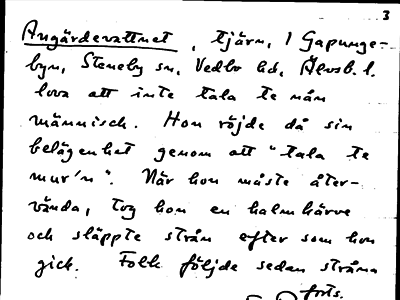 3
Angärdevattnet, tjärn, i Gapunge-
byn, Steneby sn, Vedbo hd, Älvsb. l.
lova att inte tala te nån
männisch. Hon röjde då sin
belägenhet genom att "tala te
mur'n". När hon måste åter-
vända, tog hon en halmkärve
och släppte strån efter som hon
gick. Folk följde sedan stråna
forts.